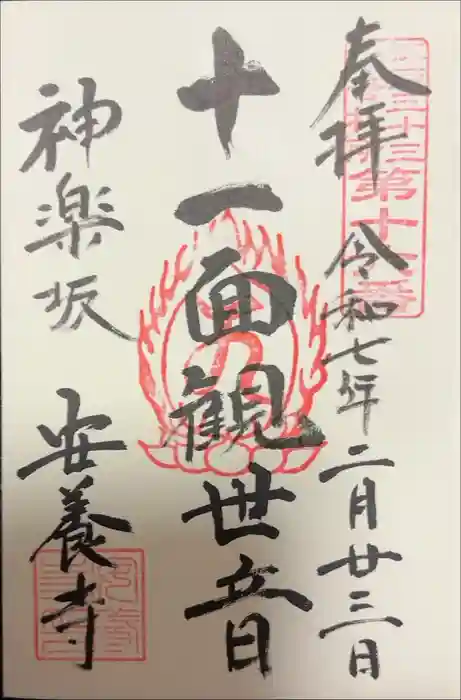 奉拝
令和七年二月廿三日
第十六番
十一面観世音
神楽坂
安養寺